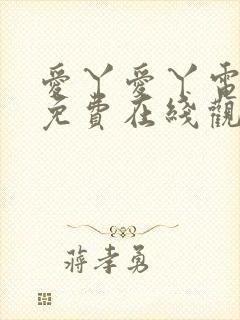 愛丫愛丫電
免費在綫觀
蔣孝勇